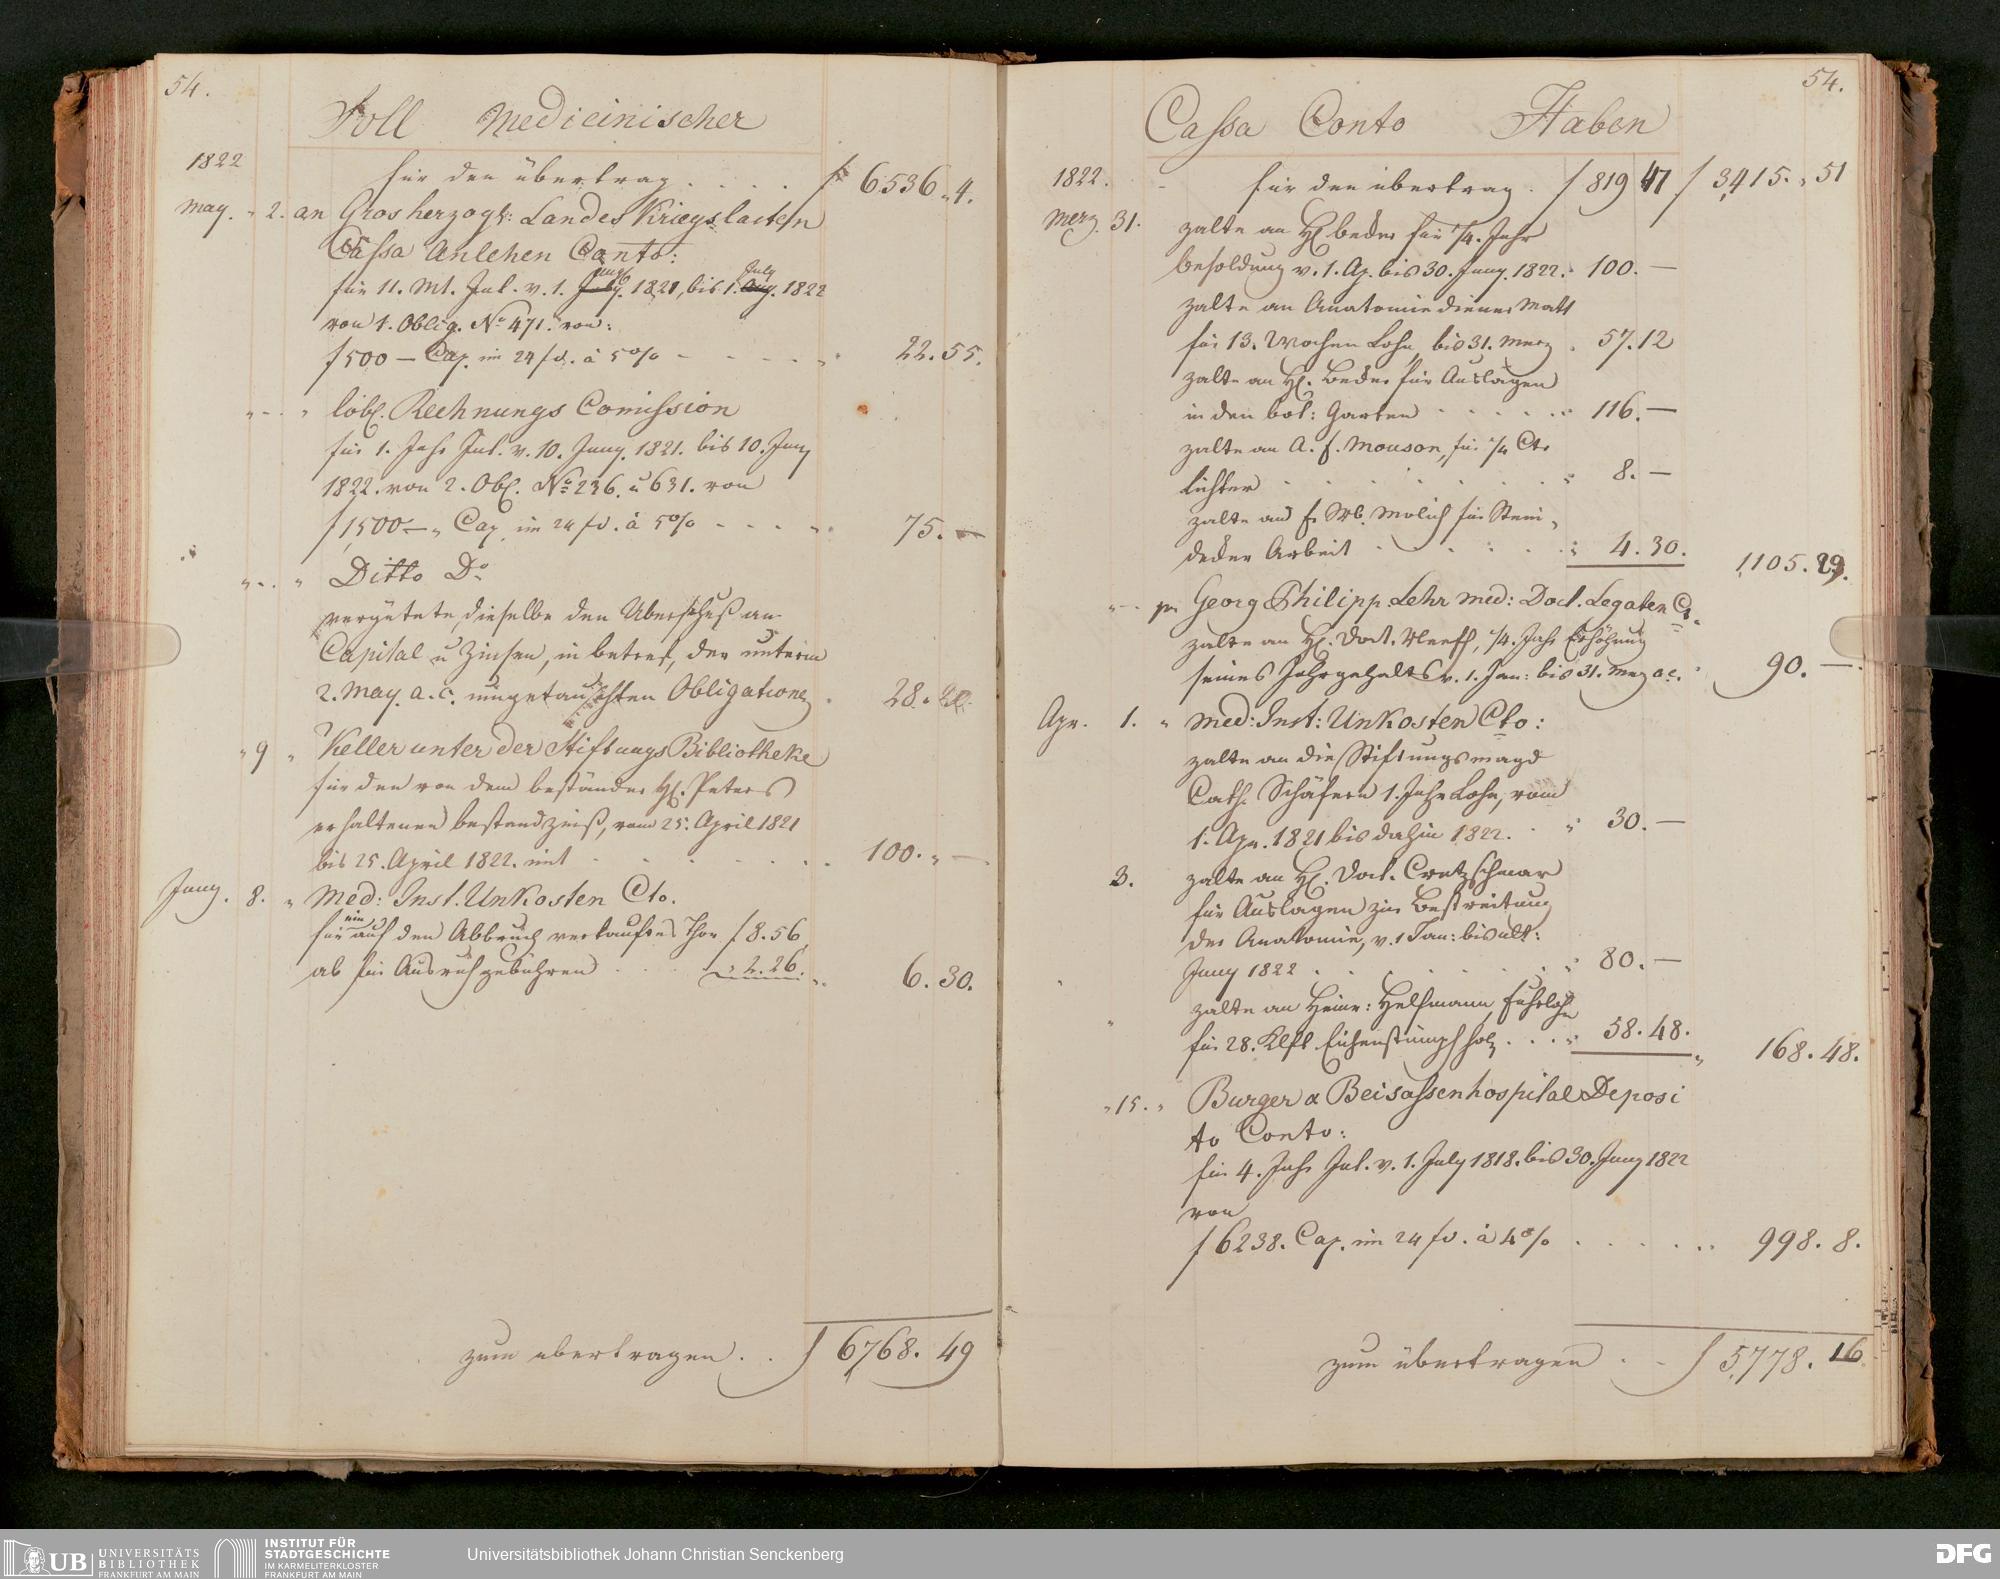 54.
Soll Medicinischer
1822
für den übertrag . . . . f 6536 „ 4.
May. „ 2. an Grosherzogl: Landes Kriegslasten
Cassa Anlehen Conto:
für 11. Mt. Int. v. 1. July. 1821, bis 1. Aug. July 1822
von 1. Oblig. No 471. von:
f 500 — Cap. im 24 fl. à 5% - - - - „ 22. 55.
„ - . „ löbl. Rechnungs Comission
für 1. Jahr Int. v. 10. Juny. 1821. bis 10. Juny
1822. von 2. Obl. No 236. u 631. von
f 1500 —„ Cap. im 24 fl. à 5% - - - - „ 75. —
„ - . „ Ditto Do
vergütete dieselbe den Uberschuß an
Capital u Zinsen, in betref, der unterm
2. May. a. c. umgetauschten Obligationen . 28.
„ 9 „ Keller unter der Stiftungs Bibliotheke
für den von dem beständer H. Peters
erhaltenen bestandzinß, vom 25. April 1821
bis 25. April 1822. mit - - - - - - 100. „ —
Juny. 8. „ Med: Inst. Unkosten Cto.
für ein auf den Abbruch verkauftes Thor f 8. 56
ab für Ausrufgebühren . . . „ 2. 26. „ 6. 30.
zum übertragen . . f 6768. 49
54.
Cassa Conto Haben
1822. - für den übertrag . f 819 47 f 3415. „ 51
Merz. 31. zalte an H. Beker für 1/4. Jahr
besoldung v. 1. Ap. bis 30. Juny. 1822. „ 100. —
zalte an Anatomiediener Matt
für 13. Wochen Lohn, bis 31. Merz . 57. 12
zalte an H. Beker für Auslagen
in den bot: Garten - - - - - „ 116. —
zalte an A. f. Mouson, für 1/4 Ctr
lichter . . . . . . . „ 8. —
zalte an Molich für Stein„
deker Arbeit . . . . . . „ 4. 30. 1105. 29.
„ - pr Georg Philipp Lehr Med: Doct. Legaten Co.
zalte an H. Doct. Neeff, 1/4. Jahr Erhöhung
seines Jahrgehalts v. 1. Jan: bis 31. Merz a c. „ 90. —.
Apr. 1. „ Med: Inst: Unkosten Cto:
zalte an die Stiftungsmagd
Cath. Schäfern 1. Jahr Lohn, vom
1. Apr. 1821 bis dahin 1822. . „ 30. —
3. zalte an H. Doct. Cretzschmar
für Auslagen zur Bestreitung
der Anatomie, v. 1 Jan: bis ult:
Juny 1822 . . . . . . . „ 80. —
„ zalte an Heinr: Helfmann, Fuhrlohn
für 28. Klft. Eichenstumpfholz . . . „ 58. 48. „ 168. 48.
„ 15. „ Burger & Beisassenhospital Deposi
to Conto:
für 4. Jahr Int. v. 1. July 1818. bis 30. Juny 1822
von
f 6238. Cap. im 24 fl. à 4% . . . . . . 998. 8.
zum übertragen . - f 5778. 16
UB UNIVERSITÄTS
BIBLIOTHEK
FRANKFURT AM MAIN
INSTITUT FÜR
STADTGESCHICHTE
IM KARMELITERKLOSTER
FRANKFURT AM MAIN
Universitätsbibliothek Johann Christian Senckenberg
DFG